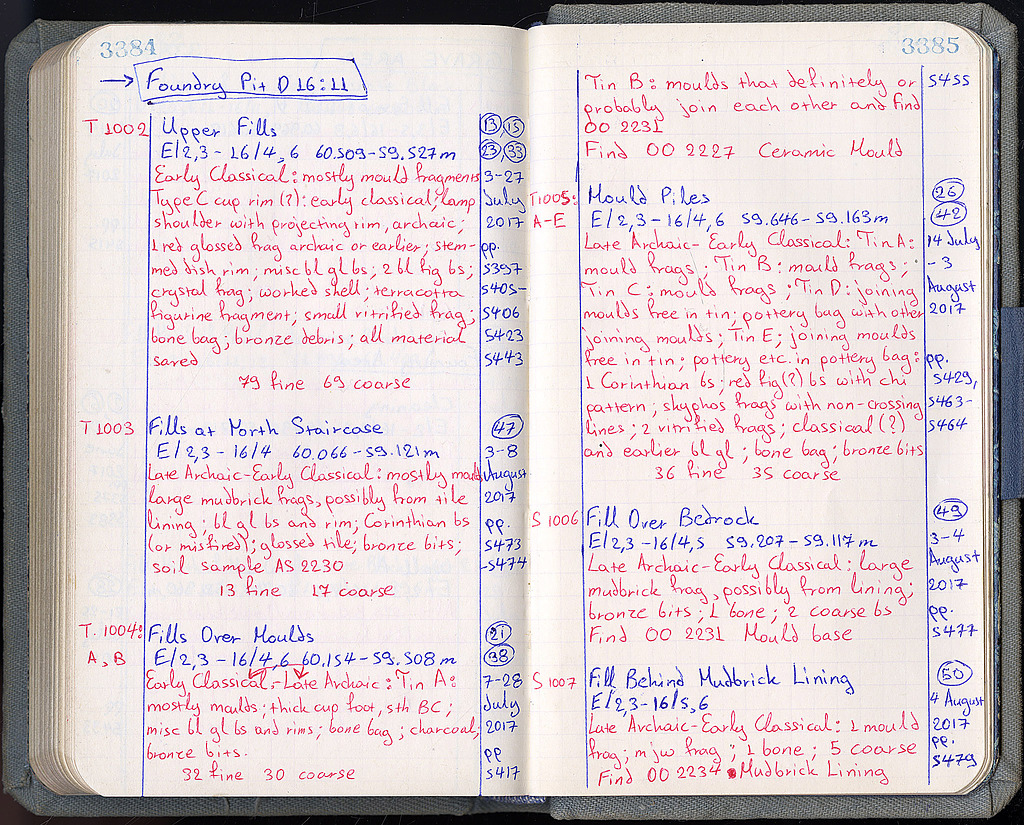 3384
→ Foundry Pit D 16:11
T 1002 Upper Fills 13, 15
E/2,3 - 16/4,6 60.509-59.527m 23, 33
Early Classical: mostly mould fragments 3-27
Type C cup rim (?): early classical; lamp July
shoulder with projecting rim, archaic; 2017
1 red glossed frag archaic or earlier; stem- pp.
med dish rim; misc bl gl bs; 2 bl fig bs; 5397
crystal frag; worked shell; terracotta 5405-
figurine fragment; small vitrified frag; 5406
bone bag; bronze debris; all material 5423
saved 5443
79 fine 69 coarse
T 1003 Fills at North Staircase 47
E/2,3 - 16/4 60.066-59.121m 3-8
Late Archaic-Early Classical: mostly mould August
large mudbrick frags, possibly from tile 2017
lining; bl gl bs and rim; Corinthian bs pp.
(or misfired); glossed tile; bronze bits; 5473
soil sample AS 2230 -5474
13 fine 17 coarse
T. 1004: Fills Over Moulds 21
A, B E/2,3 - 16/4,6 60.154-59.508m 38
Early Classical-Late Archaic: Tin A: 7-28
mostly moulds; thick cup foot, 5th BC; July
misc bl gl bs and rims; bone bag; charcoal; 2017
bronze bits. pp
32 fine 30 coarse 5417
3385
Tin B: moulds that definitely or 5455
probably join each other and Find
OO 2231
Find OO 2227 Ceramic Mould
T1005: Mould Piles 26
A-E E/2,3 - 16/4,6 59.646-59.163m 42
Late Archaic-Early Classical: Tin A: 14 July
mould frags; Tin B: mould frags; - 3
Tin C: mould frags; Tin D: joining August
moulds free in tin; pottery bag with other 2017
joining moulds; Tin E; joining moulds
free in tin; pottery etc. in pottery bag: pp.
1 Corinthian bs; red fig(?) bs with chi 5429,
pattern; skyphos frags with non-crossing 5463-
lines; 2 vitrified frags; classical (?) 5464
and earlier bl gl; bone bag; bronze bits
36 fine 35 coarse
S 1006 Fill Over Bedrock 49
E/2,3-16/4,5 59.207-59.117m 3-4
Late Archaic-Early Classical: large August
mudbrick frag, possibly from lining; 2017
bronze bits; 1 bone; 2 coarse bs pp.
Find OO 2231 Mould base 5477
S 1007 Fill Behind Mudbrick Lining 50
E/2,3-16/5,6 4 August
Late Archaic-Early Classical: 1 mould 2017
frag; mjw frag; 1 bone; 5 coarse pp.
Find OO 2234 Mudbrick Lining 5479